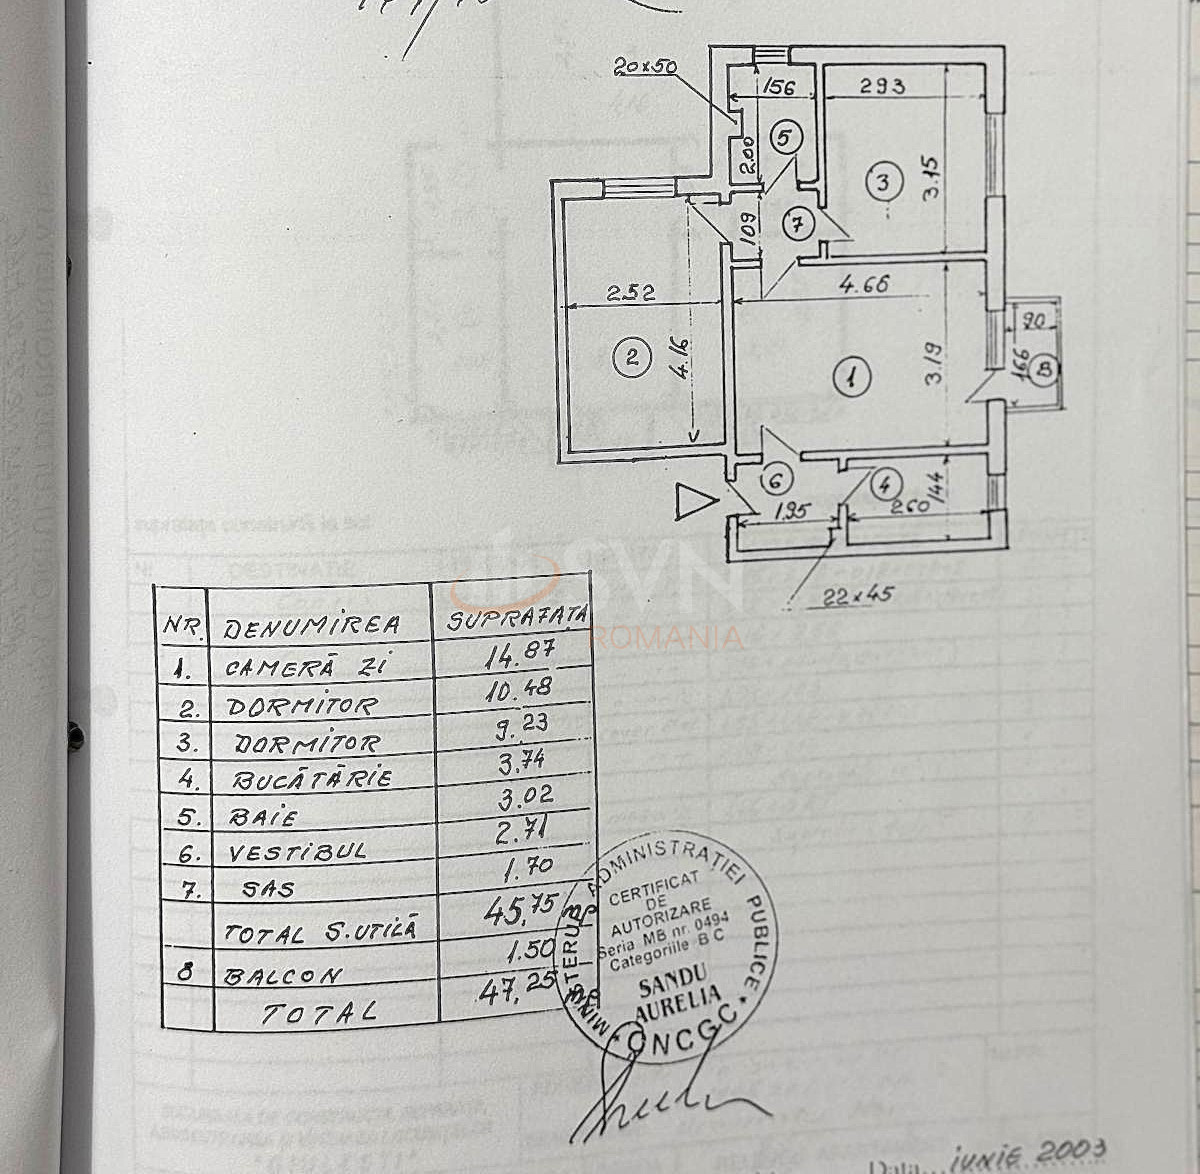 20x50
156
293
5
2.00
3
3.15
109
7
2.52
4.66
90
2
4.16
1
3.19
166
B
6
4
144
1.95
2.60
22x45
SVN
ROMANIA
NR. DENUMIREA SUPRAFATA
1. CAMERĂ ZI 14.87
2. DORMITOR 10.48
3. DORMITOR 9.23
4. BUCĂTĂRIE 3.74
5. BAIE 3.02
6. VESTIBUL 2.71
7. SAS 1.70
TOTAL S.UTILĂ 45,75 mp
1.50
8 BALCON
TOTAL 47,25 mp
MINISTERUL ADMINISTRAȚIEI PUBLICE
CERTIFICAT
DE
AUTORIZARE
Seria MB nr. 0494
Categoriile B C
SANDU
AURELIA
* ONCGC *
Data... iunie 2003